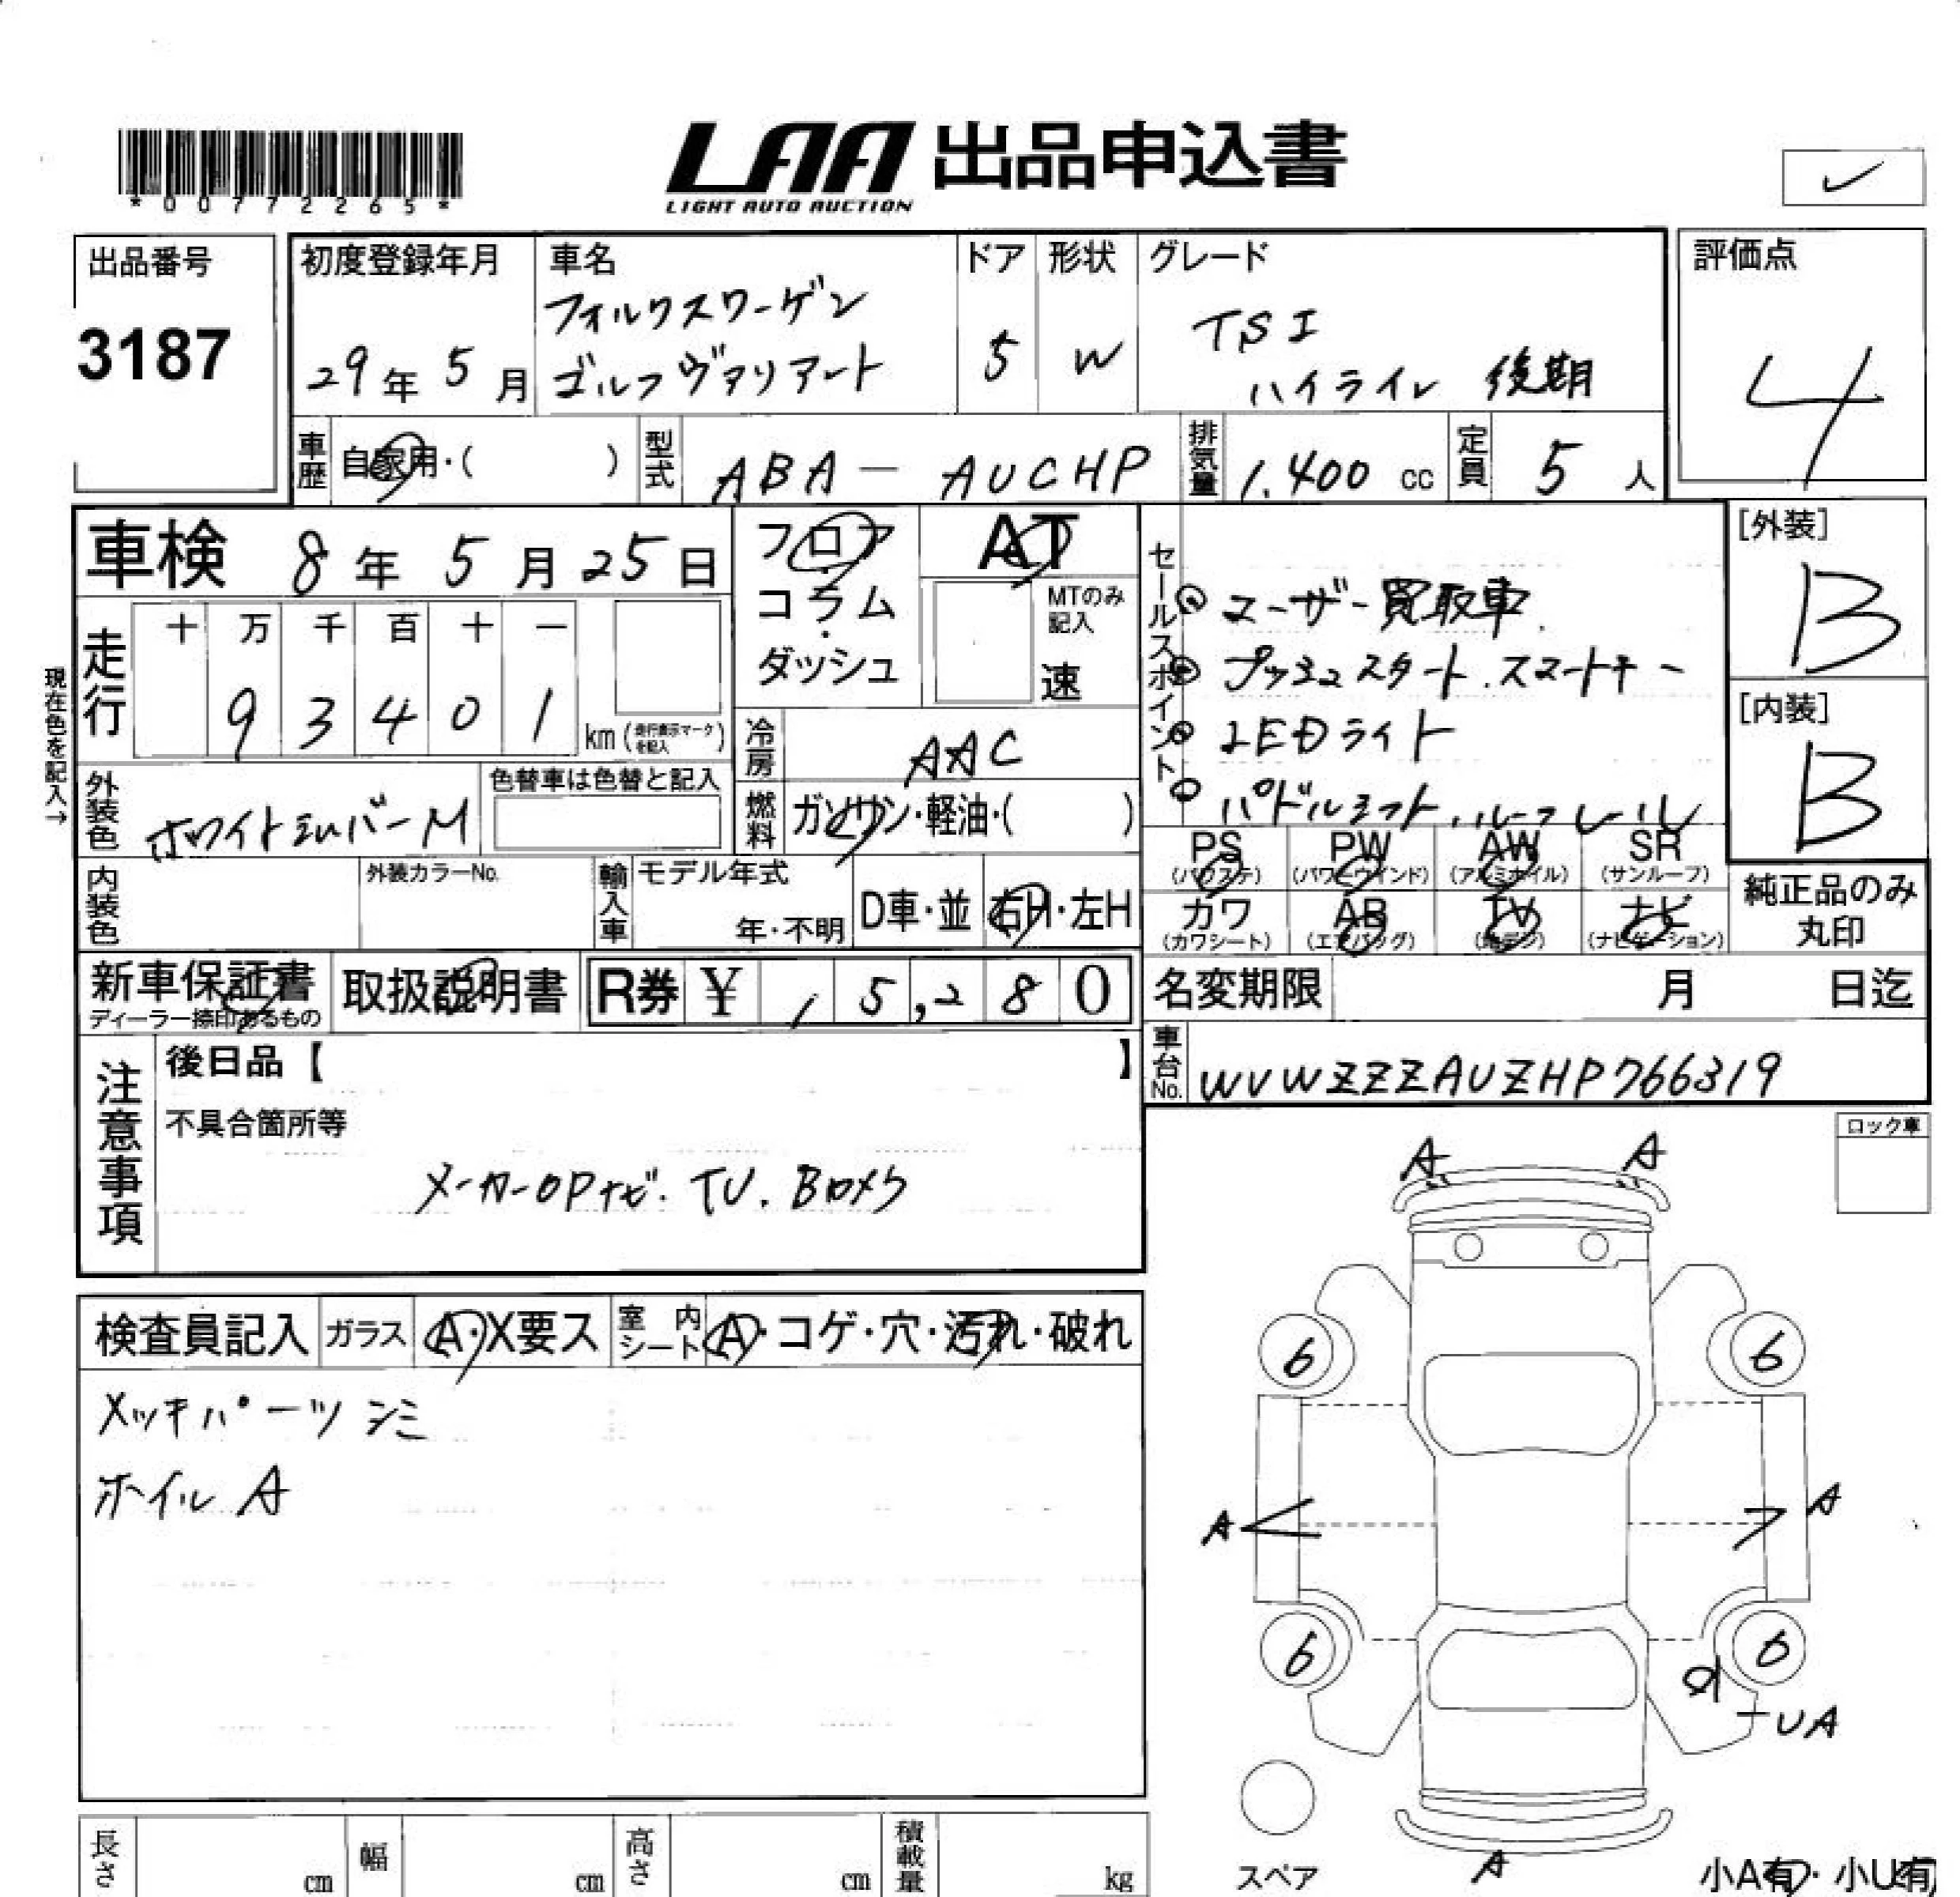 *00772265*
LAA 出品申込書
LIGHT AUTO AUCTION
✓
出品番号
3187
初度登録年月
29年 5月
車名
フォルクスワーゲン
ゴルフヴァリアート
ドア
5
形状
W
グレード
TSI
ハイライン 後期
評価点
4
車歴 自家用・( )
型式 ABA- AUCHP
排気量 1.400 cc
定員 5 人
車検 8年 5月 25日
走行
十 万 千 百 十 一
9 3 4 0 1
km (走行表示マークを記入)
現在色を記入→
フロア・コラム・ダッシュ
AT
MTのみ記入
速
冷房 AAC
燃料 ガソリン・軽油・( )
外装色 ホワイトシルバーM
色替車は色替と記入
内装色
外装カラーNo.
輸入車
モデル年式
年・不明
D車・並
右H・左H
セールスポイント
ユーザー買取車.
プッシュスタート.スマートキー
LEDライト
パドルシフト.ルーフレール
[外装]
B
[内装]
B
PS (パワステ)
PW (パワーウインド)
AW (アルミホイル)
SR (サンルーフ)
カワ (カワシート)
AB (エアバッグ)
TV (地デジ)
ナビ (ナビゲーション)
純正品のみ
丸印
新車保証書
ディーラー捺印あるもの
取扱説明書
R券 ¥ 15,280
名変期限 月 日迄
車台No. WVWZZZAUZHP766319
注意事項
後日品【 】
不具合箇所等
メーカーOPナビ. TV. BOX5
ロック車
検査員記入
ガラス A・X要ス
室内シート A・コゲ・穴・汚れ・破れ
メッキパーツシミ
ホイルA
A A
6 6
A A
6 6
UA
スペア
A
小A有・小U有
長さ cm
幅 cm
高さ cm
積載量 kg